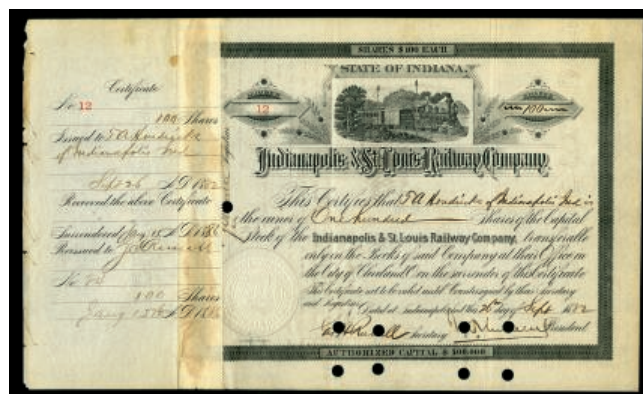 Certificate
No 12
100 Shares
Issued to T A Hendricks
of Indianapolis Ind
Sept 26 A.D 1882
Received the above Certificate
Surrendered Jany 15 A.D 1886
Reissued to
No
100 Shares
Jany 15th A.D 1886
SHARES $100 EACH
STATE OF INDIANA.
NUMBER
12
SHARES
100
Indianapolis & St. Louis Railway Company
This Certifies that T A Hendricks of Indianapolis Ind is
the owner of One hundred shares of the Capital
stock of the Indianapolis & St. Louis Railway Company, transferable
only on the Books of said Company at their Office in
the City of Cleveland O. on the surrender of this Certificate
This Certificate not to be valid until Countersigned by their Secretary
and
Dated at Indianapolis this 26 day of Sept 1882
Secretary President
AUTHORIZED CAPITAL $ 500.000